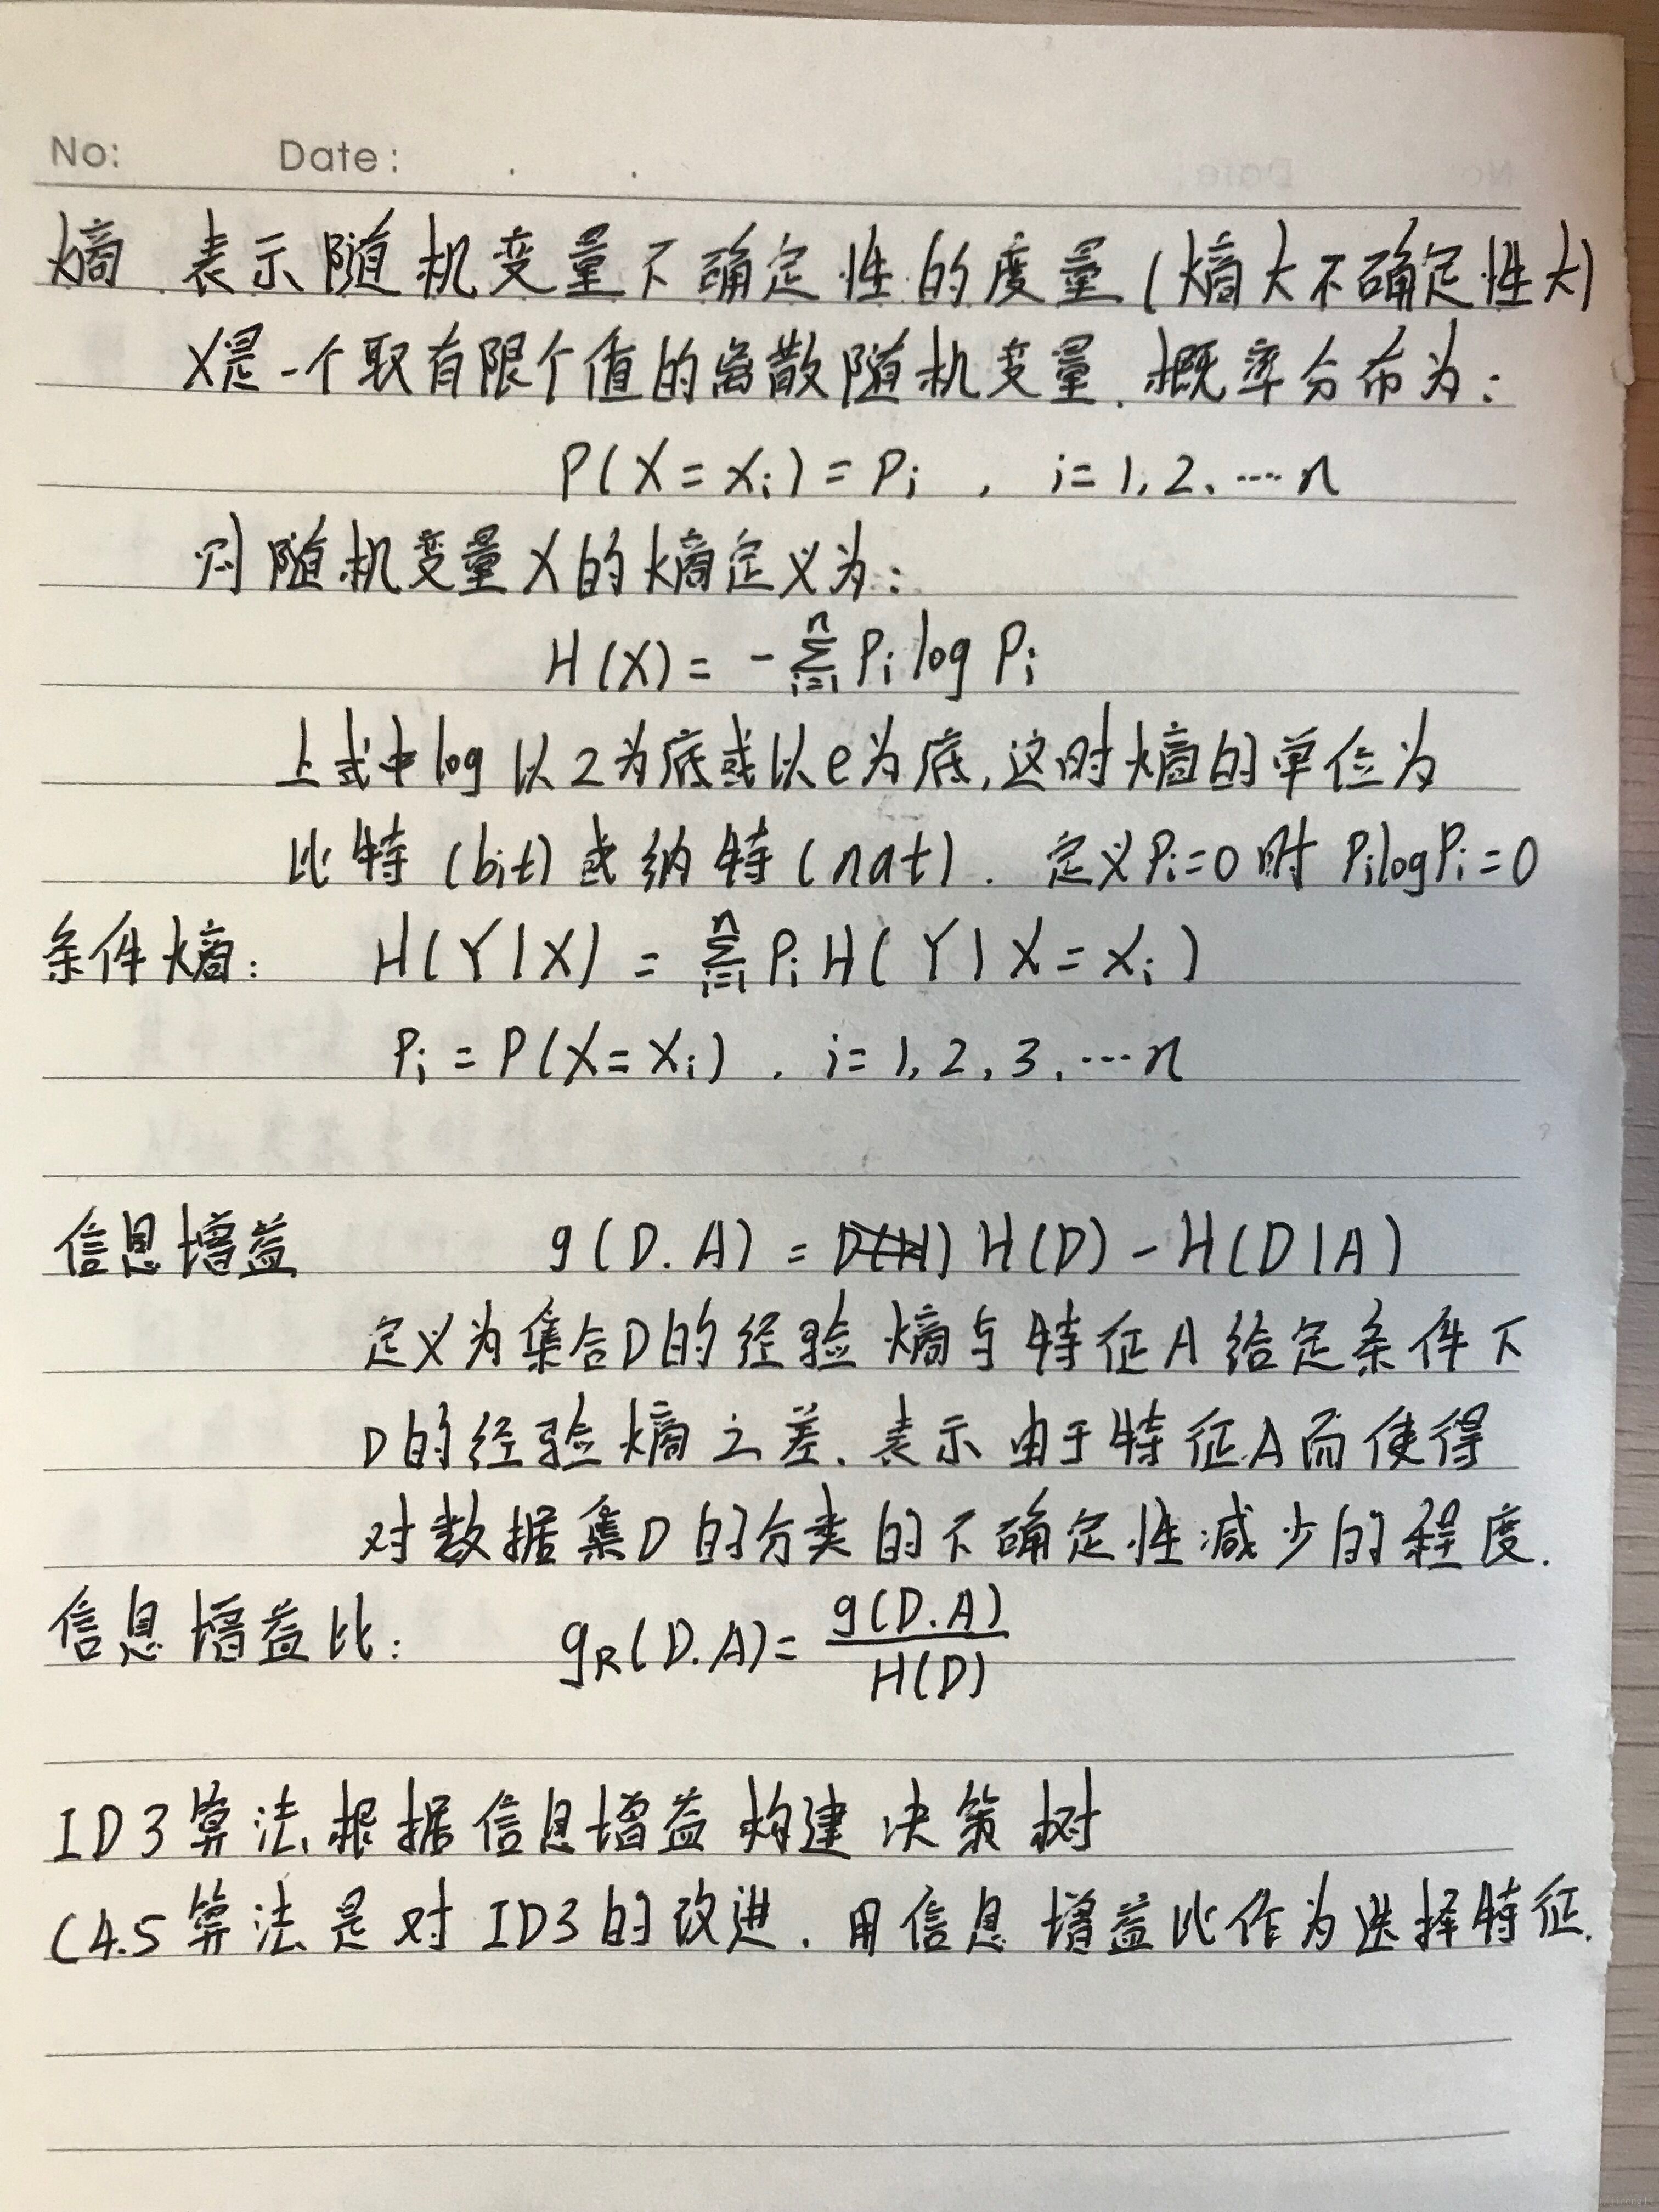 No: Date: . .
熵 表示随机变量不确定性的度量(熵大不确定性大)
X是一个取有限个值的离散随机变量.概率分布为:
P(X=xi)=Pi , i=1,2,…n
则随机变量X的熵定义为:
H(X)=-∑_{i=1}^{n} Pi log Pi
上式中log以2为底或以e为底,这时熵的单位为
比特(bit)或纳特(nat). 定义Pi=0时 PilogPi=0
条件熵: H(Y|X)=∑_{i=1}^{n} Pi H(Y|X=xi)
Pi=P(X=xi). i=1,2,3,…n
信息增益 g(D.A)=H(D)-H(D|A)
定义为集合D的经验熵与特征A给定条件下
D的经验熵之差.表示由于特征A而使得
对数据集D的分类的不确定性减少的程度.
信息增益比: gR(D.A)=g(D.A)/H(D)
ID3算法根据信息增益构建决策树
C4.5算法是对ID3的改进.用信息增益比作为选择特征.